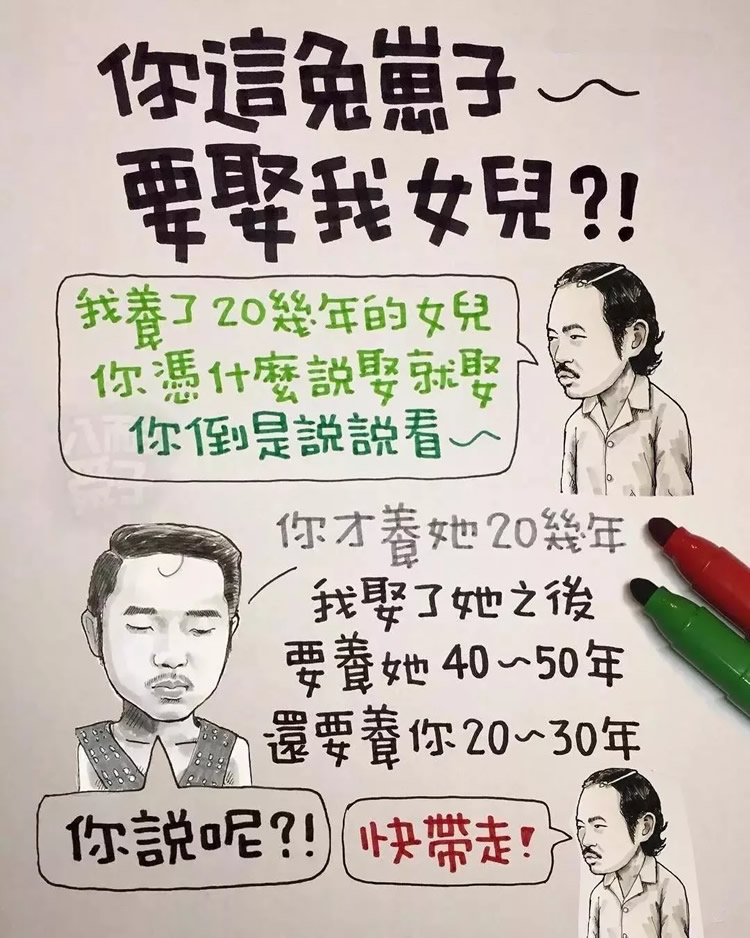 你這兔崽子～
要娶我女兒?!
我養了20幾年的女兒
你憑什麼說娶就娶
你倒是說說看～
你才養她20幾年
我娶了她之後
要養她40～50年
還要養你20～30年
你說呢?!
快帶走!